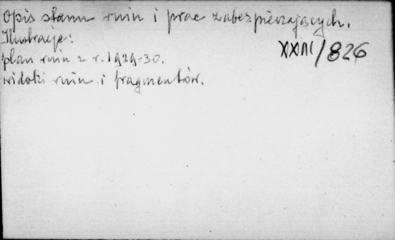 Opis stanu ruin i prac zabezpieczających.
Ilustracje:
XXIII/826
plan ruin z r. 1929-30.
widoki ruin i fragmentów.